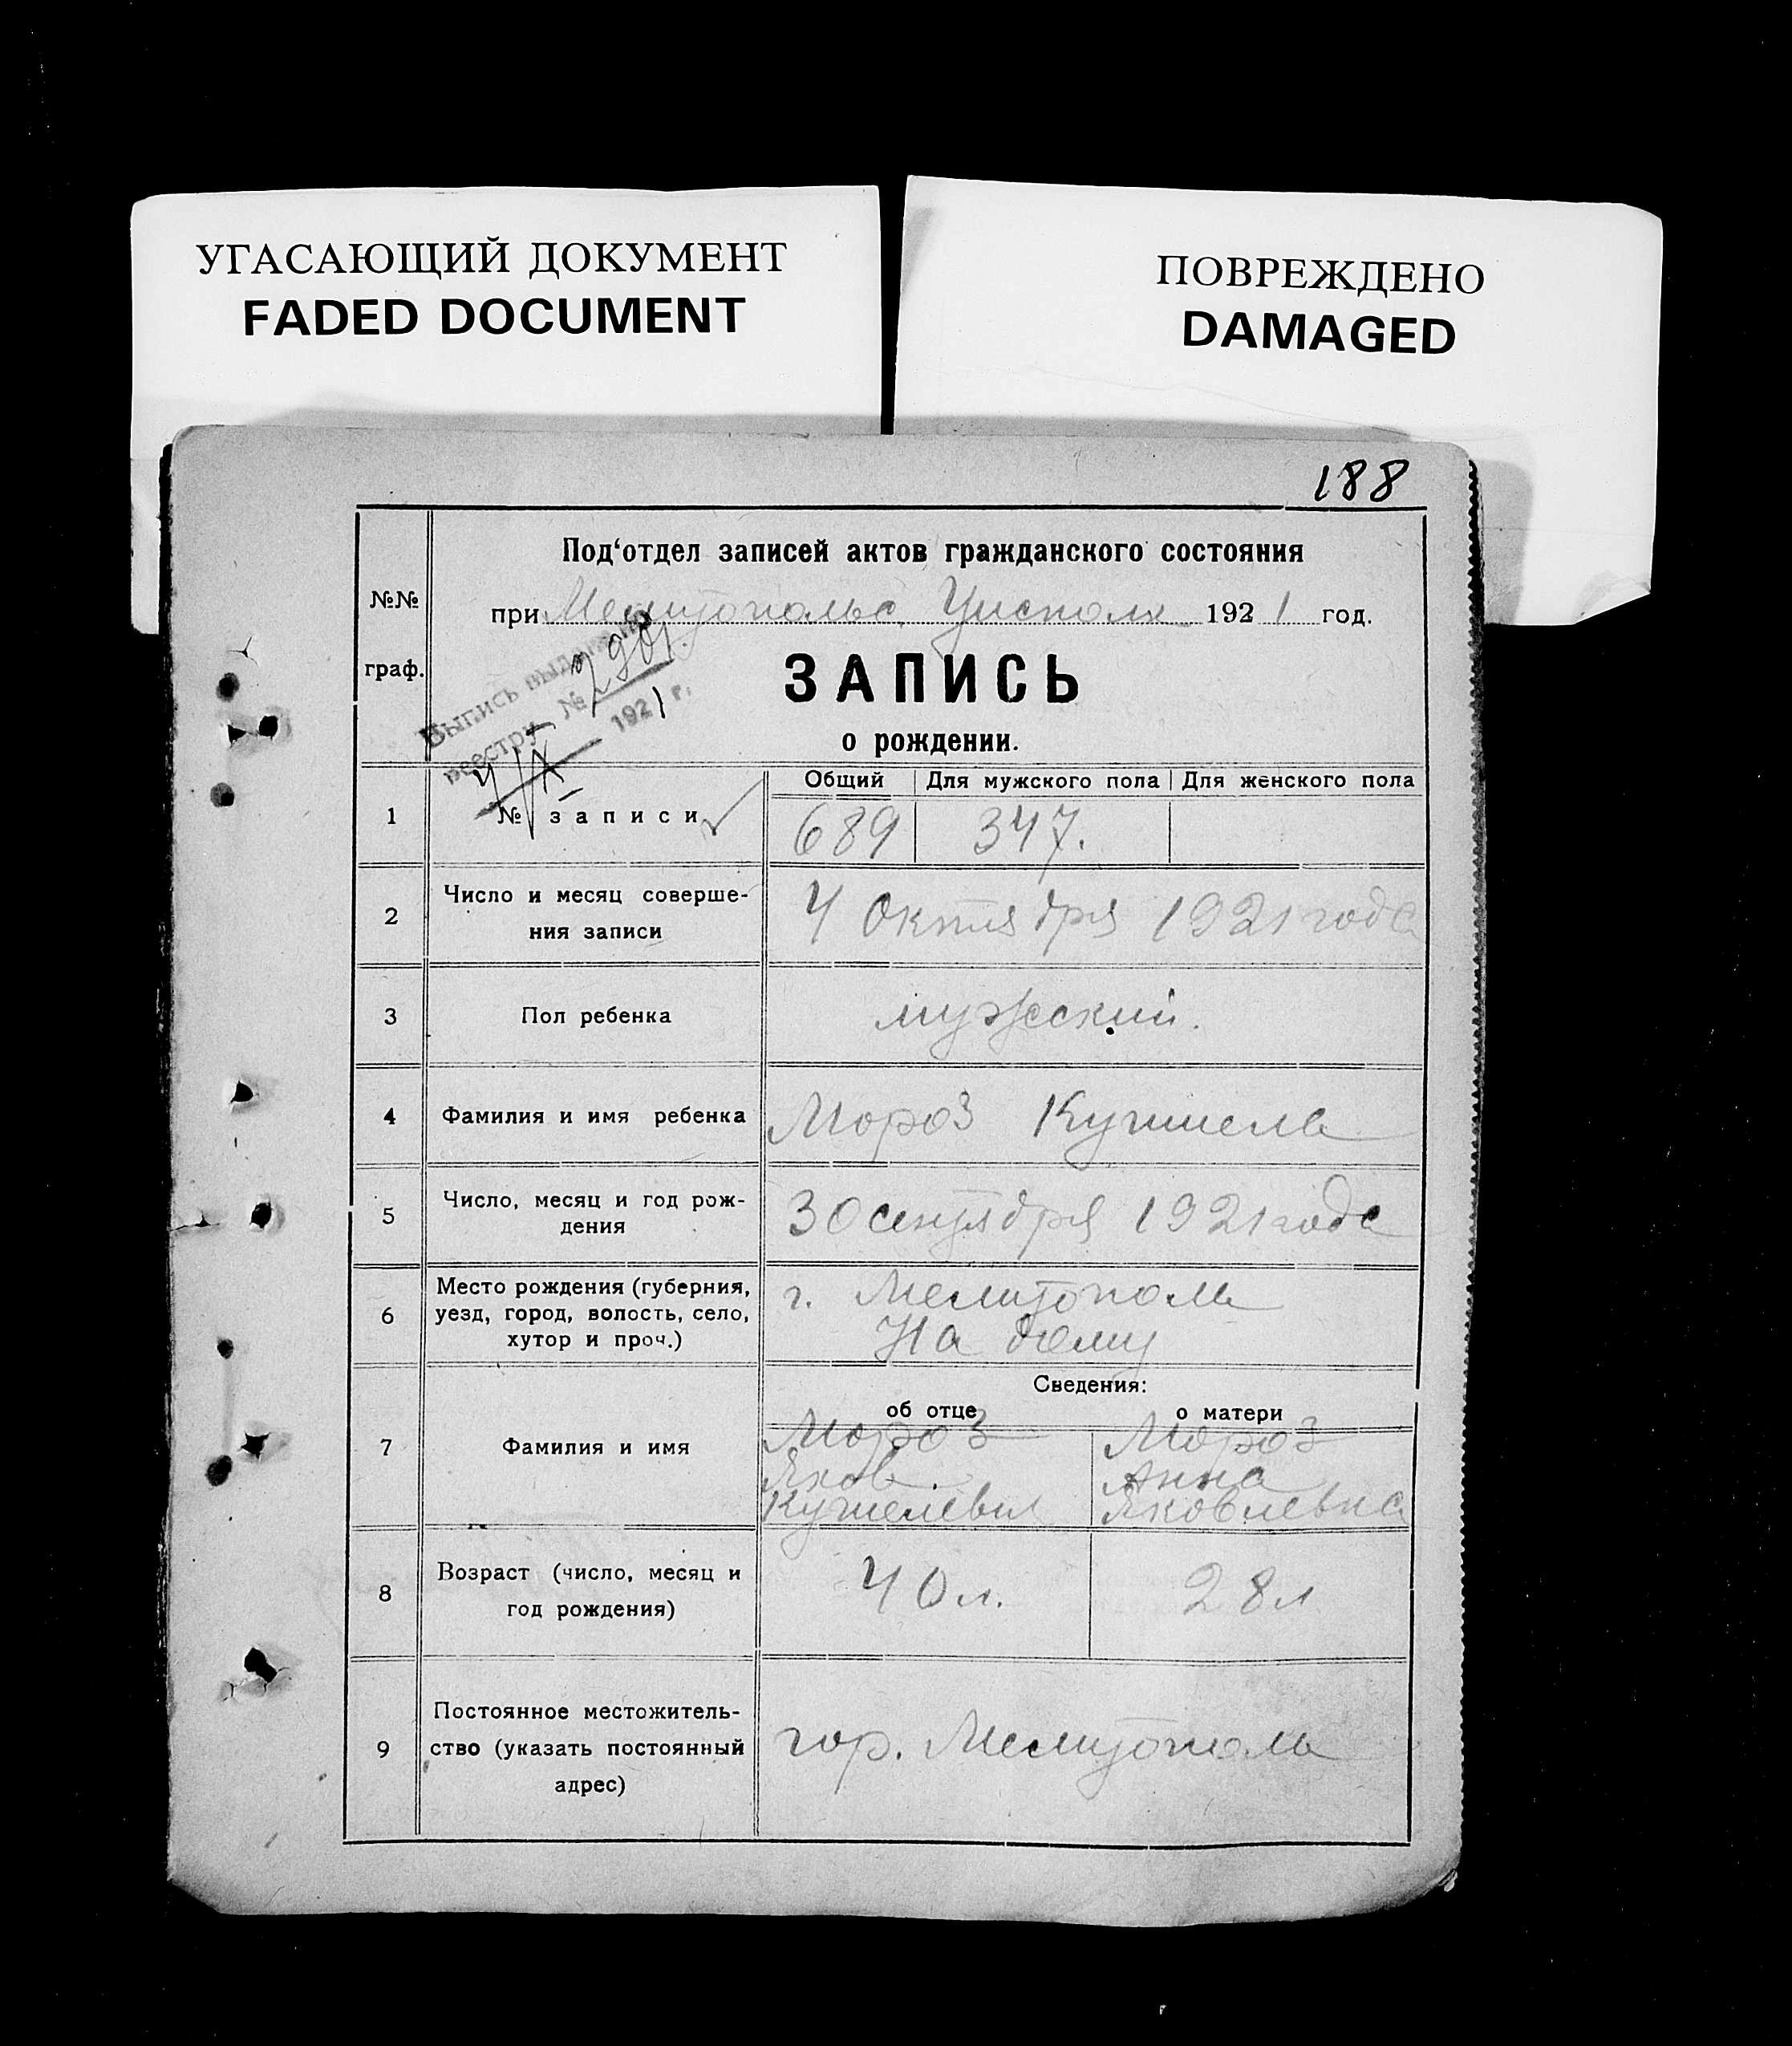 УГАСАЮЩИЙ ДОКУМЕНТ
FADED DOCUMENT
ПОВРЕЖДЕНО
DAMAGED
188
№№
граф.
Под‘отдел записей актов гражданского состояния
при Мелитопольс. Уисполк 1921 год.
Выпись выдана по
реестру № 2901.
4/X 1921 г.
ЗАПИСЬ
о рождении.
Общий Для мужского пола Для женского пола
1 № записи 689 347.
2 Число и месяц соверше-
ния записи
4 Октября 1921 года
3 Пол ребенка мужеский.
4 Фамилия и имя ребенка Мороз
5 Число, месяц и год рож-
дения
30 сентября 1921 года
6 Место рождения (губерния,
уезд, город, волость, село,
хутор и проч.)
г. Мелитополь
На дому
Сведения:
об отце о матери
7 Фамилия и имя
Мороз
Яков
Мороз
Анна
Яковлевна
8 Возраст (число, месяц и
год рождения)
40 л. 28 л
9 Постоянное местожитель-
ство (указать постоянный
адрес)
гор. Мелитополь